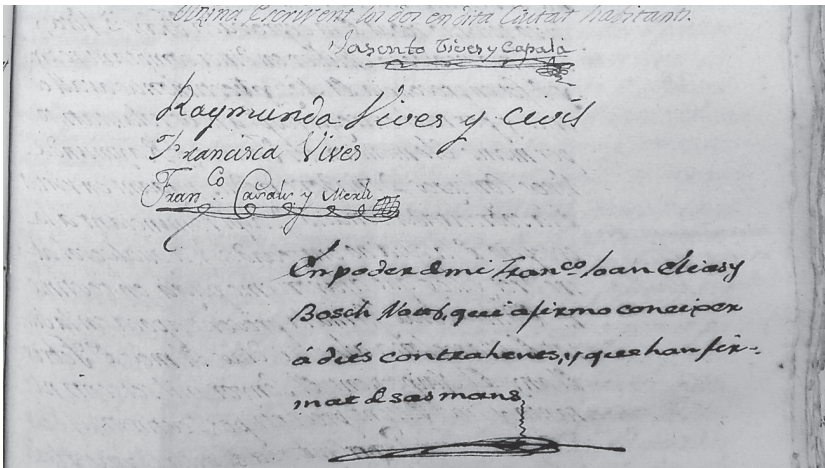 Escrivent los dos en dita Ciutat habitants.
Jasento Vives y Capalá
Raymunda Vives y Civís
Francisca Vives
Fran.co y
En poder de mi Franco Joan Elias y
Bosch Nott, qui afirmo coneixer
á dits contrahents, y que han fir-
mat de sas mans